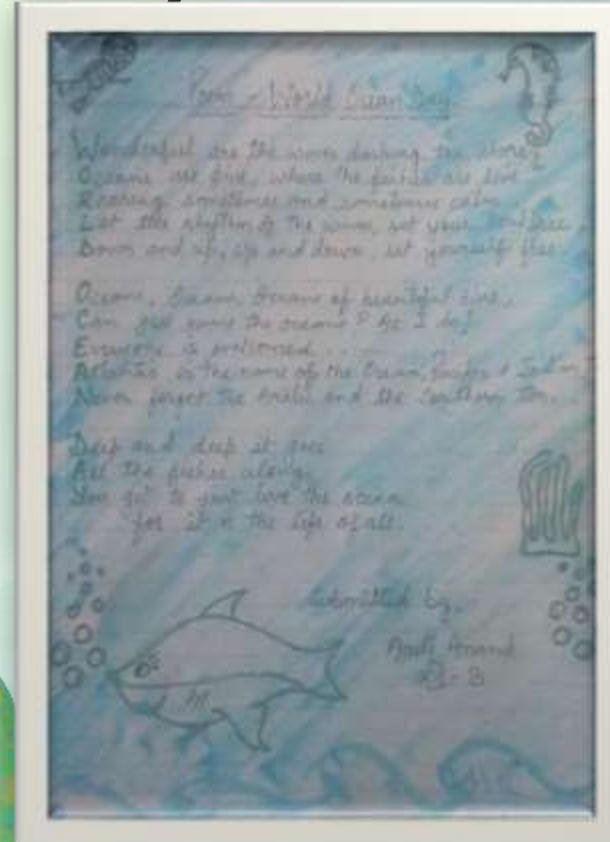 Poem - World Ocean Day
Wonderful are the waves dashing the shore
Oceans are fine, where the fishes are
Roaring sometimes and sometimes calm
Let the rhythm of the waves, set your
Down and up, up and down, set yourself free.
Oceans, Oceans, Oceans of beautiful
Can you name the oceans? As I do!
Everyone is welcomed ...
Atlantic is the name of the Ocean, Pacific & Indian
Never forget the Arctic and the Southern Too...
Deep and deep it goes
All the fishes along,
You got to just love the ocean
for it is the life of all.
Submitted by,
Anand
- B